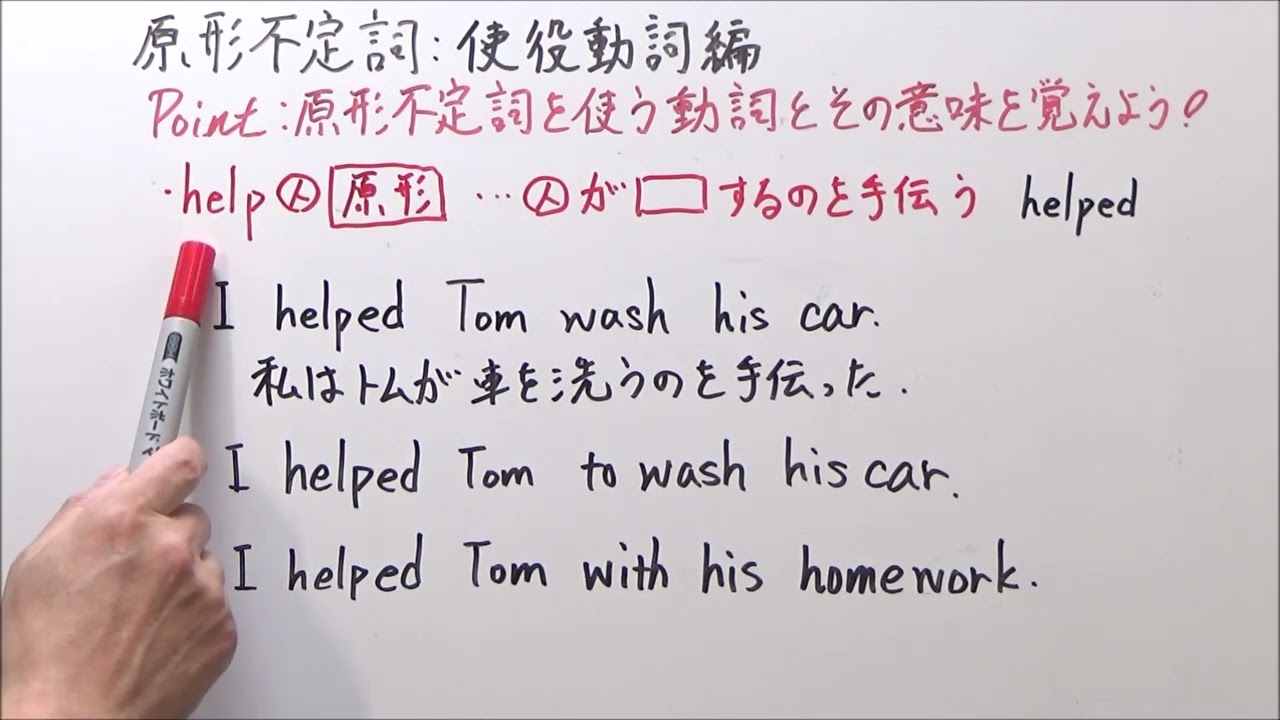 原形不定詞:使役動詞編
Point:原形不定詞を使う動詞とその意味を覚えよう!
・help 人 原形 …人が□するのを手伝う helped
I helped Tom wash his car.
私はトムが車を洗うのを手伝った.
I helped Tom to wash his car.
I helped Tom with his homework.
ホワイトボード